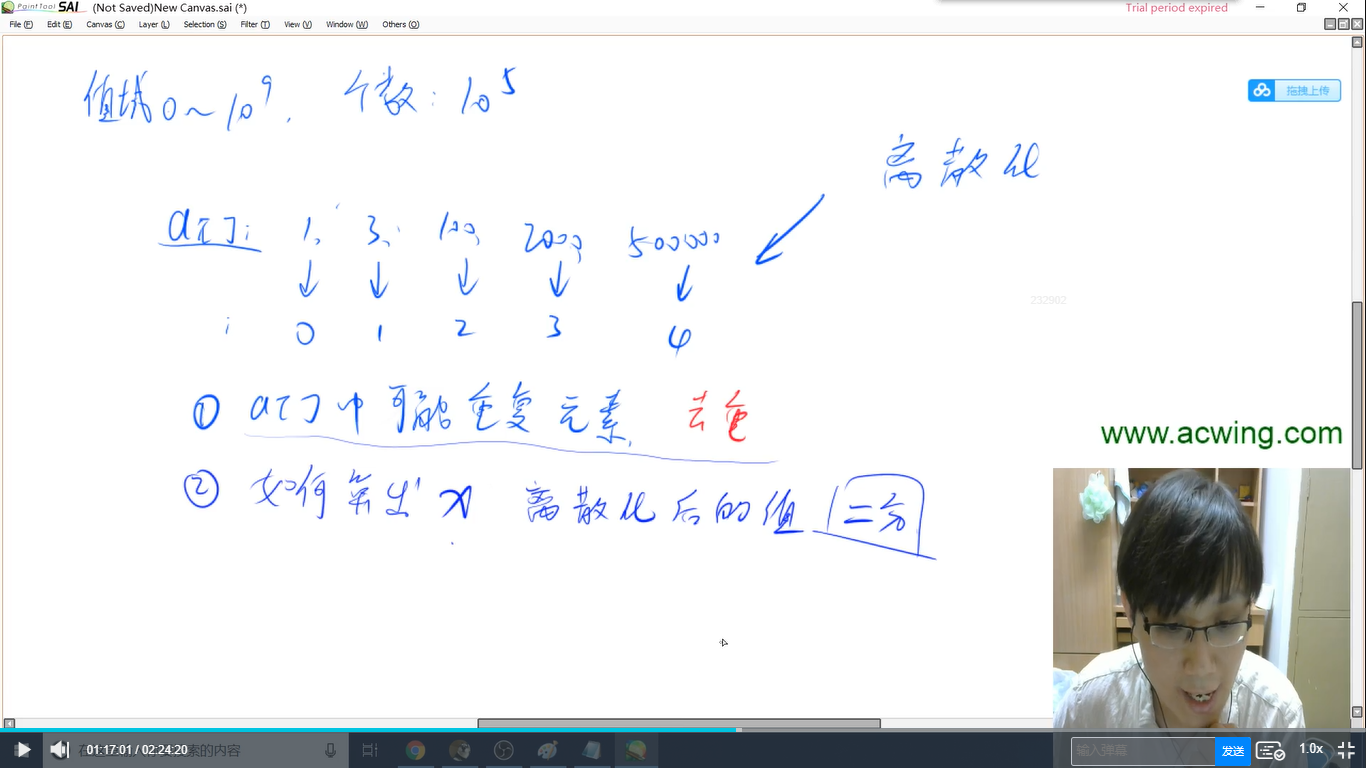 PaintTool SAI (Not Saved)New Canvas.sai (*) Trial period expired
File (F) Edit (E) Canvas (C) Layer (L) Selection (S) Filter (T) View (V) Window (W) Others (O)
值域0~10^9. 个数: 10^5
拖拽上传
离散化
a[]: 1, 3, 100, 2000, 500000
i 0 1 2 3 4
232902
① a[]中可能重复元素 去重
www.acwing.com
② 如何算出x 离散化后的值 二分
01:17:01 / 02:24:20 索的内容
输入弹幕 发送 1.0x